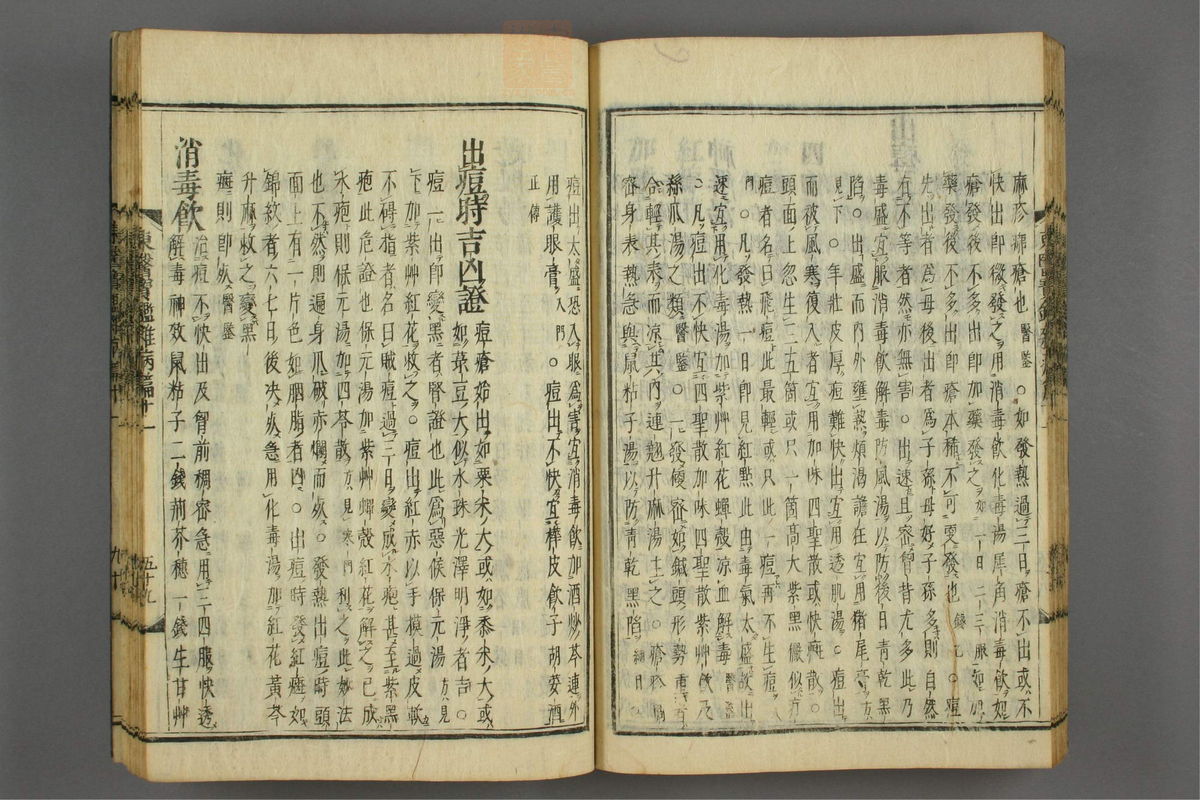 麻疹癍瘡也醫鑑○如發熱過三日瘡不出或不
快出卽微發之用消毒飮化毒湯犀角消毒飮如
瘡發後不多出卽加藥發之如一日二三服如加
藥發後不多出卽瘡本稀不可更發也錢乙○痘
先出者爲母後出者爲子痘母好子孫多則自然
有不等者然亦無害○出速且密胷背尤多此乃
毒盛宜服消毒飮解毒防風湯以防後日靑乾黑
陷○出盛而內外壅熱煩渴譫狂宜用猪尾膏方
見下○年壯皮厚痘難快出宜用透肌湯○痘出
而被風寒復入者宜用加味四聖散或快癍散○
頭面上忽生三五箇或只一箇高大紫黑儼似方
痘者名曰飛痘此最輕或只此一痘再不生痘入
門○凡發熱一日卽見紅點此由毒氣太盛故出
速宜用化毒湯加紫艸紅花蟬殼凉血解毒醫鑑
○凡痘出不快宜四聖散加味四聖散紫艸飮及
絲瓜湯之類醫鑑○一發便密如鍼頭形勢重者
合輕其表而凉其內連翹升麻湯主之○瘡疹
齊身表熱急與鼠粘子湯以防靑乾黑陷綱目○
痘出太盛恐入眼爲害宜消毒飮加酒炒芩連外
用護眼膏入門○痘出不快宜穕皮飮子胡荽酒
正傳
出痘時吉凶證 痘瘡始出如粟米大或如黍米大或
如菉豆大似水珠光澤明淨者吉○
痘一出卽變黑者腎證也此爲惡候保元湯方見
下加紫艸紅花救之○痘出紅赤以手摸過皮軟
不碍指者名曰賊痘過三日變成水疱甚至紫黑
疱此危證也保元湯加紫艸蟬殼紅花解之已成
水疱則保元湯加四苓散方見寒門利之此妙法
也不然則遍身爪破赤爛而死○發熱出痘時頭
面上有一片色如胭脂者凶○出痘時發紅癍如
錦紋者六七日後决死急用化毒湯加紅花黃芩
升麻救之變黑
癍則卽死醫鑑
消毒飮 治痘不快出及胷前稠密急用三四服快透
解毒神效鼠粘子二錢荊芥穗一錢生甘艸
東醫寶鑑雜病篇十一
五十九